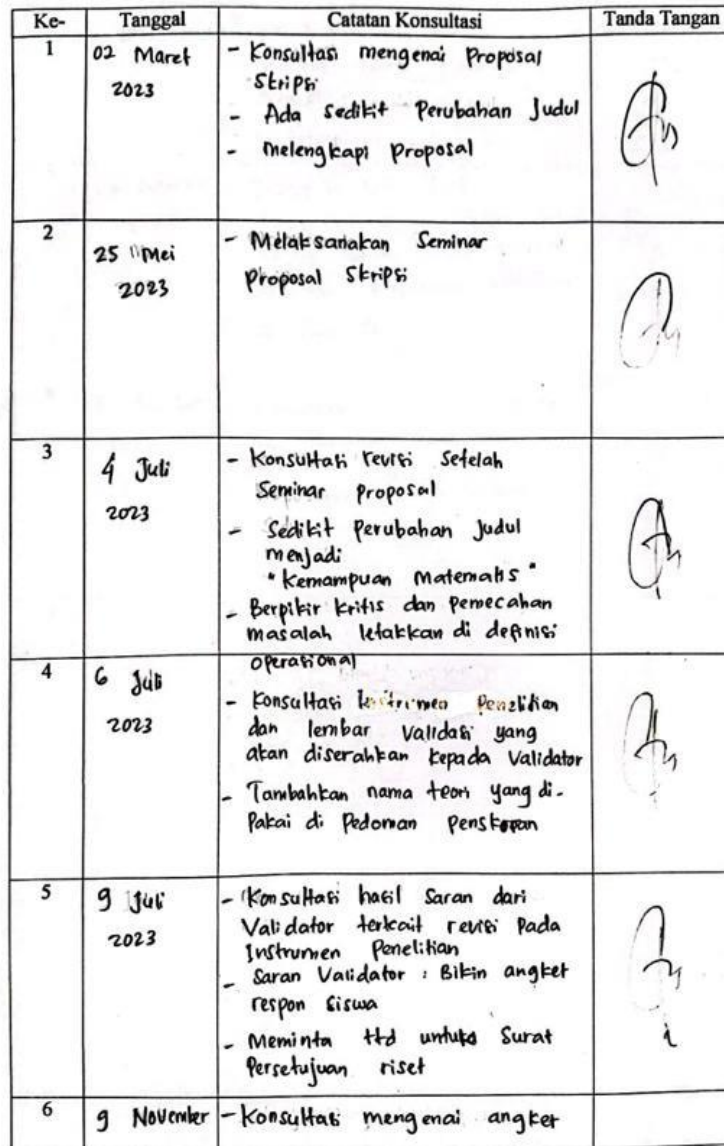 Ke- Tanggal Catatan Konsultasi Tanda Tangan
1 02 Maret - Konsultasi mengenai Proposal
2023 Skripsi
- Ada sedikit Perubahan Judul
- melengkapi Proposal
2 25 Mei - Melaksanakan Seminar
2023 Proposal Skripsi
3 4 Juli - Konsultasi revisi Setelah
2023 Seminar proposal
- Sedikit Perubahan Judul
menjadi
"Kemampuan Matematis"
- Berpikir kritis dan pemecahan
masalah letakkan di definisi
operasional
4 6 Juli - Konsultasi Instrumen Penelitian
2023 dan lembar Validasi yang
akan diserahkan kepada Validator
- Tambahkan nama teori yang di-
Pakai di Pedoman Penskoran
5 9 Juli - Konsultasi hasil Saran dari
2023 Validator terkait revisi Pada
Instrumen Penelitian
- Saran Validator : Bikin angket
respon Siswa
- Meminta ttd untuk Surat
Persetujuan riset
6 9 November - Konsultasi mengenai angket